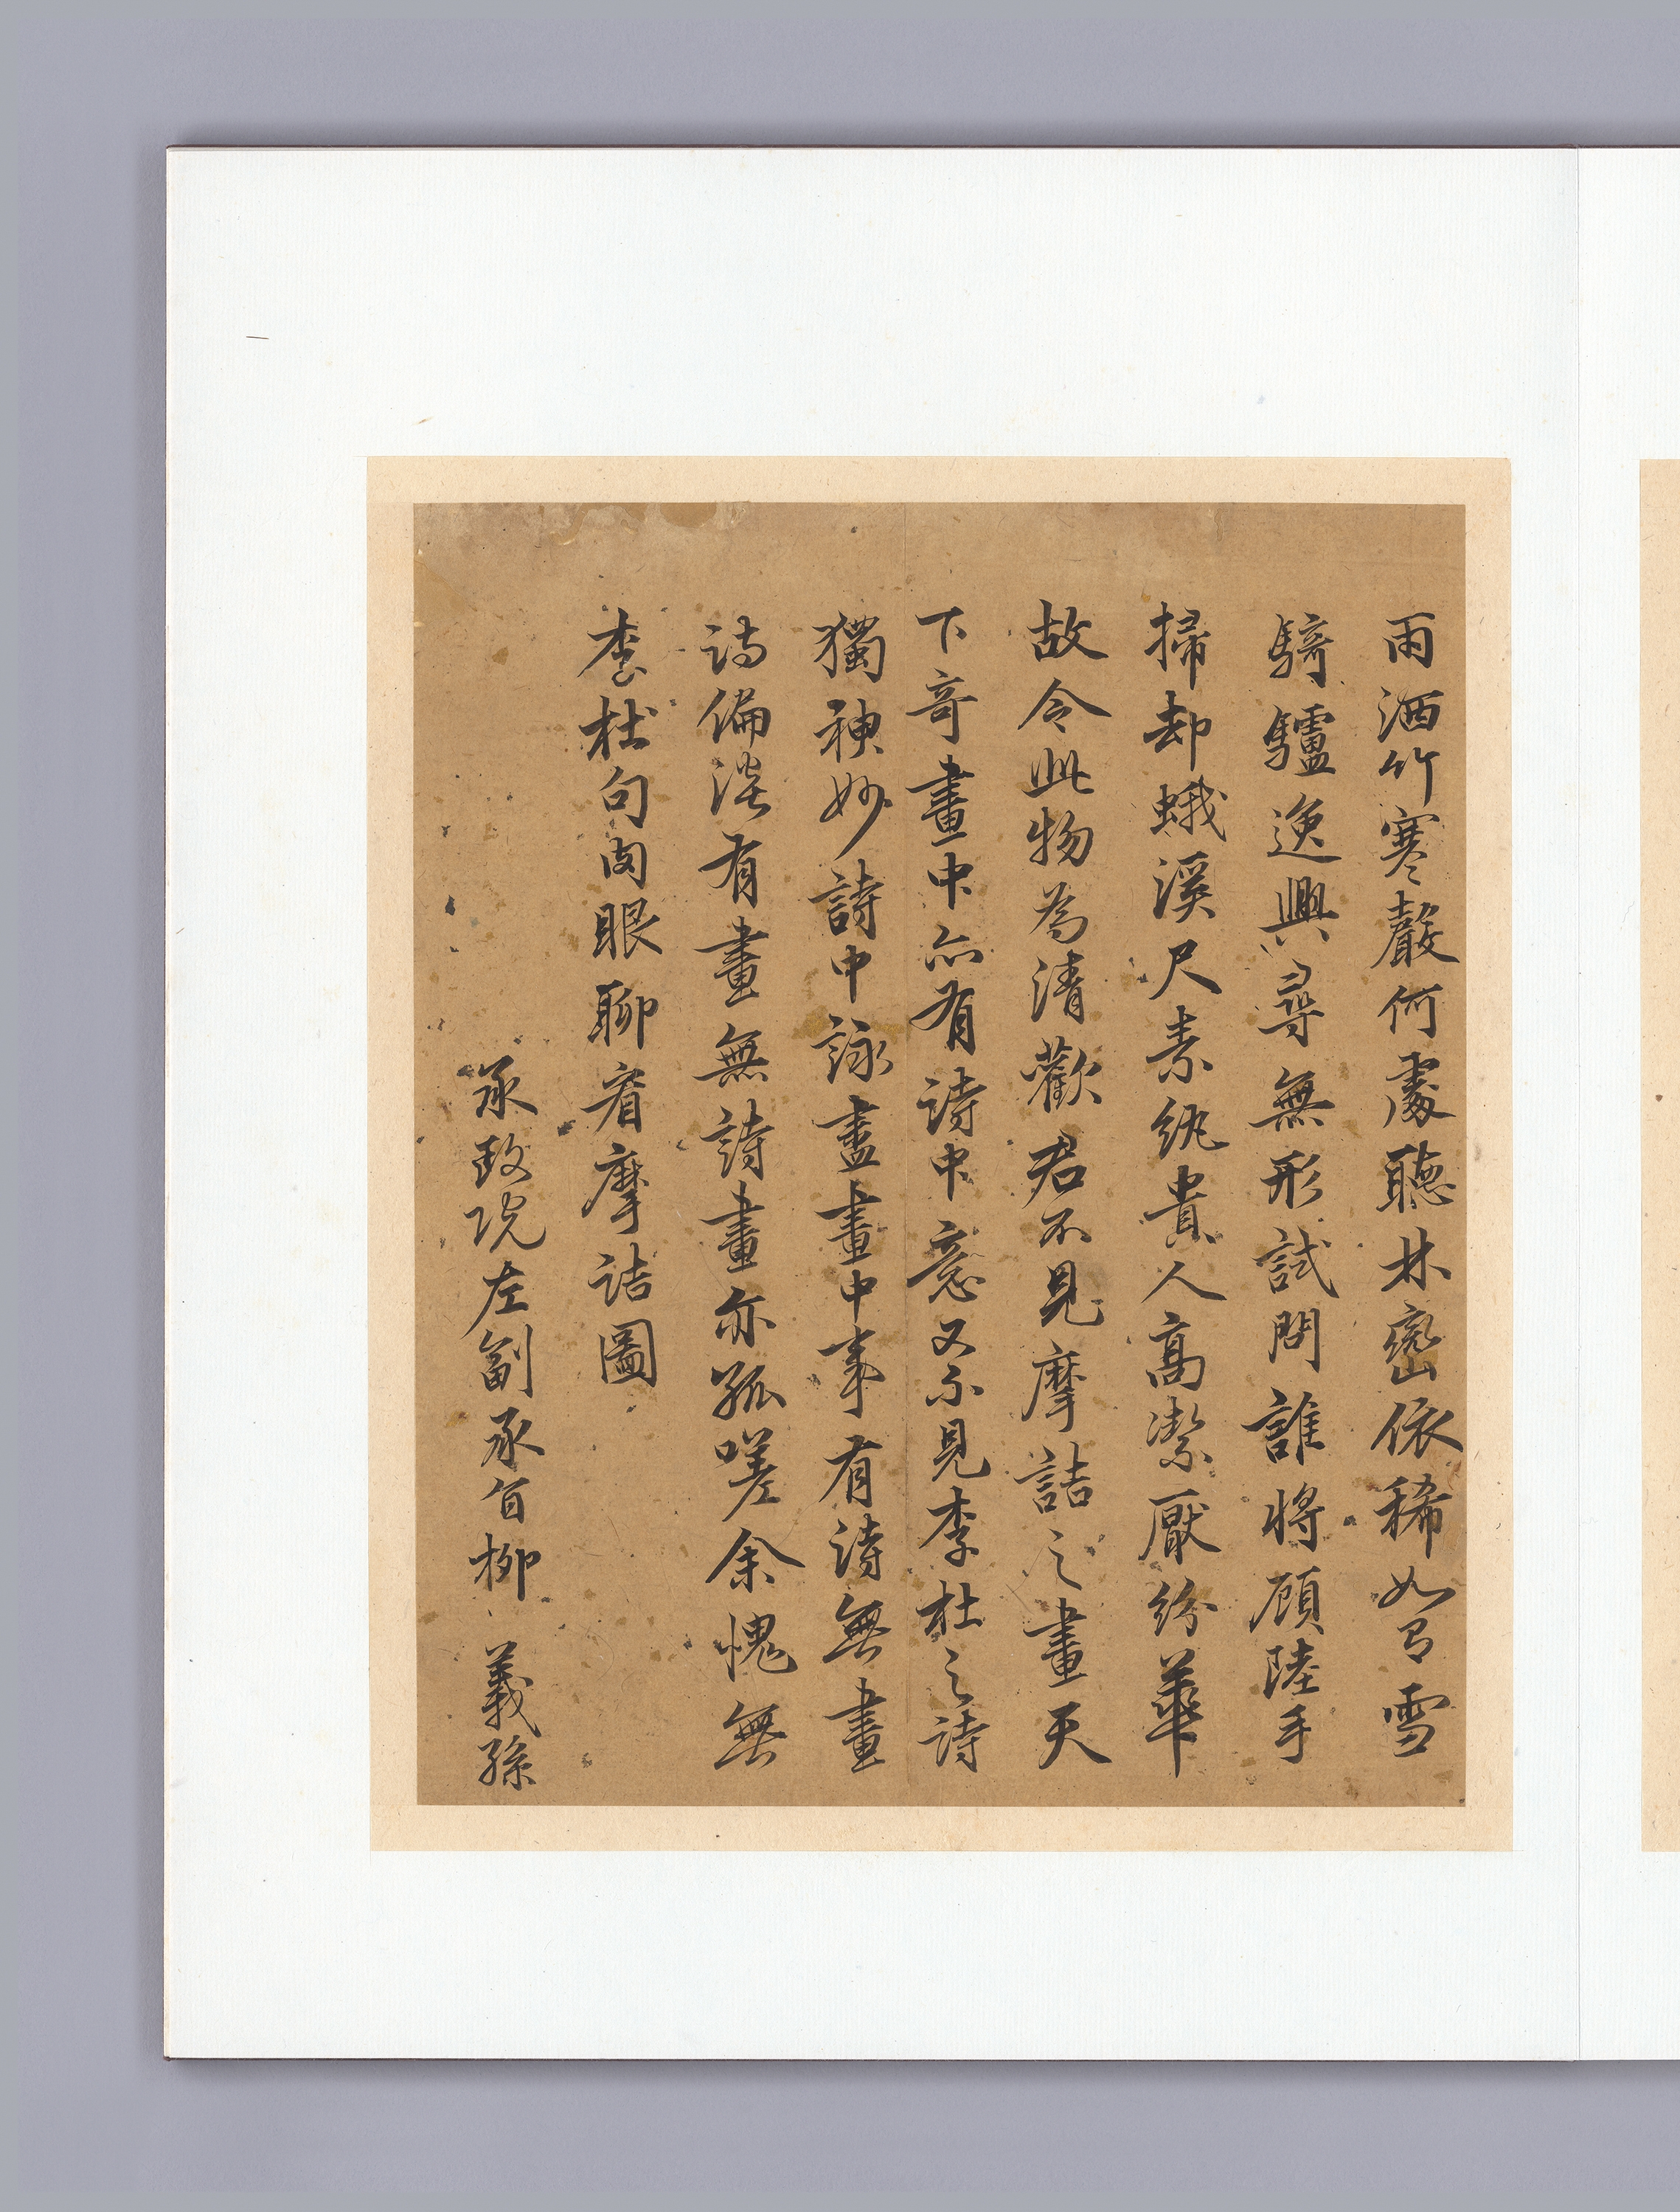 雨洒竹寒聲何處聽林巒依稀如弓雪
騎驢逸興尋無形試問誰將顧陸手
掃却蛾溪尺素紈貴人高潔厭紛華
故令此物為清歡君不見摩詰之畫天
下奇畫中亦有詩中意又不見李杜之詩
獨神妙詩中詠盡畫中事有詩無畫
詩偏淡有畫無詩畫亦孤嗟余愧無
李杜句肉眼聊看摩詰圖
承政院左副承旨柳義孫